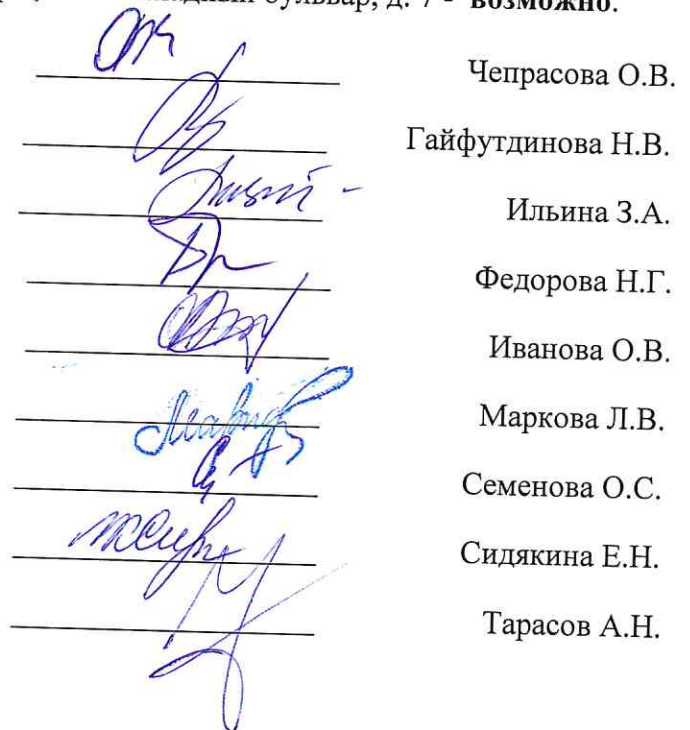 бульвар, д. 7 - возможно.
Чепрасова О.В.
Гайфутдинова Н.В.
Ильина З.А.
Федорова Н.Г.
Иванова О.В.
Маркова Л.В.
Семенова О.С.
Сидякина Е.Н.
Тарасов А.Н.